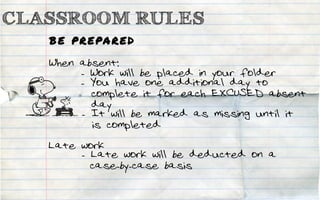 CLASSROOM RULES
BE PREPARED
When absent:
- Work will be placed in your folder
- You have one additional day to
- complete it for each EXCUSED absent
day
- It will be marked as missing until it
is completed
Late work
- Late work will be deducted on a
case-by-case basis